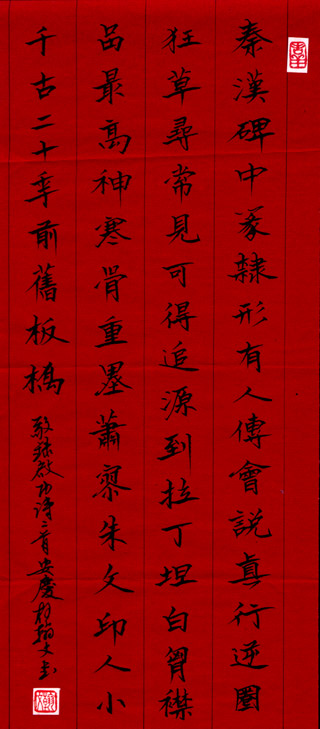 秦漢碑中篆隸形有人傅會說真行逆圈
狂草尋常見可得追源到拉丁坦白胷襟
品最高神寒骨重墨蕭寥朱文印人小
千古二十秊前舊板橋
敬錄啟功詩二首安慶